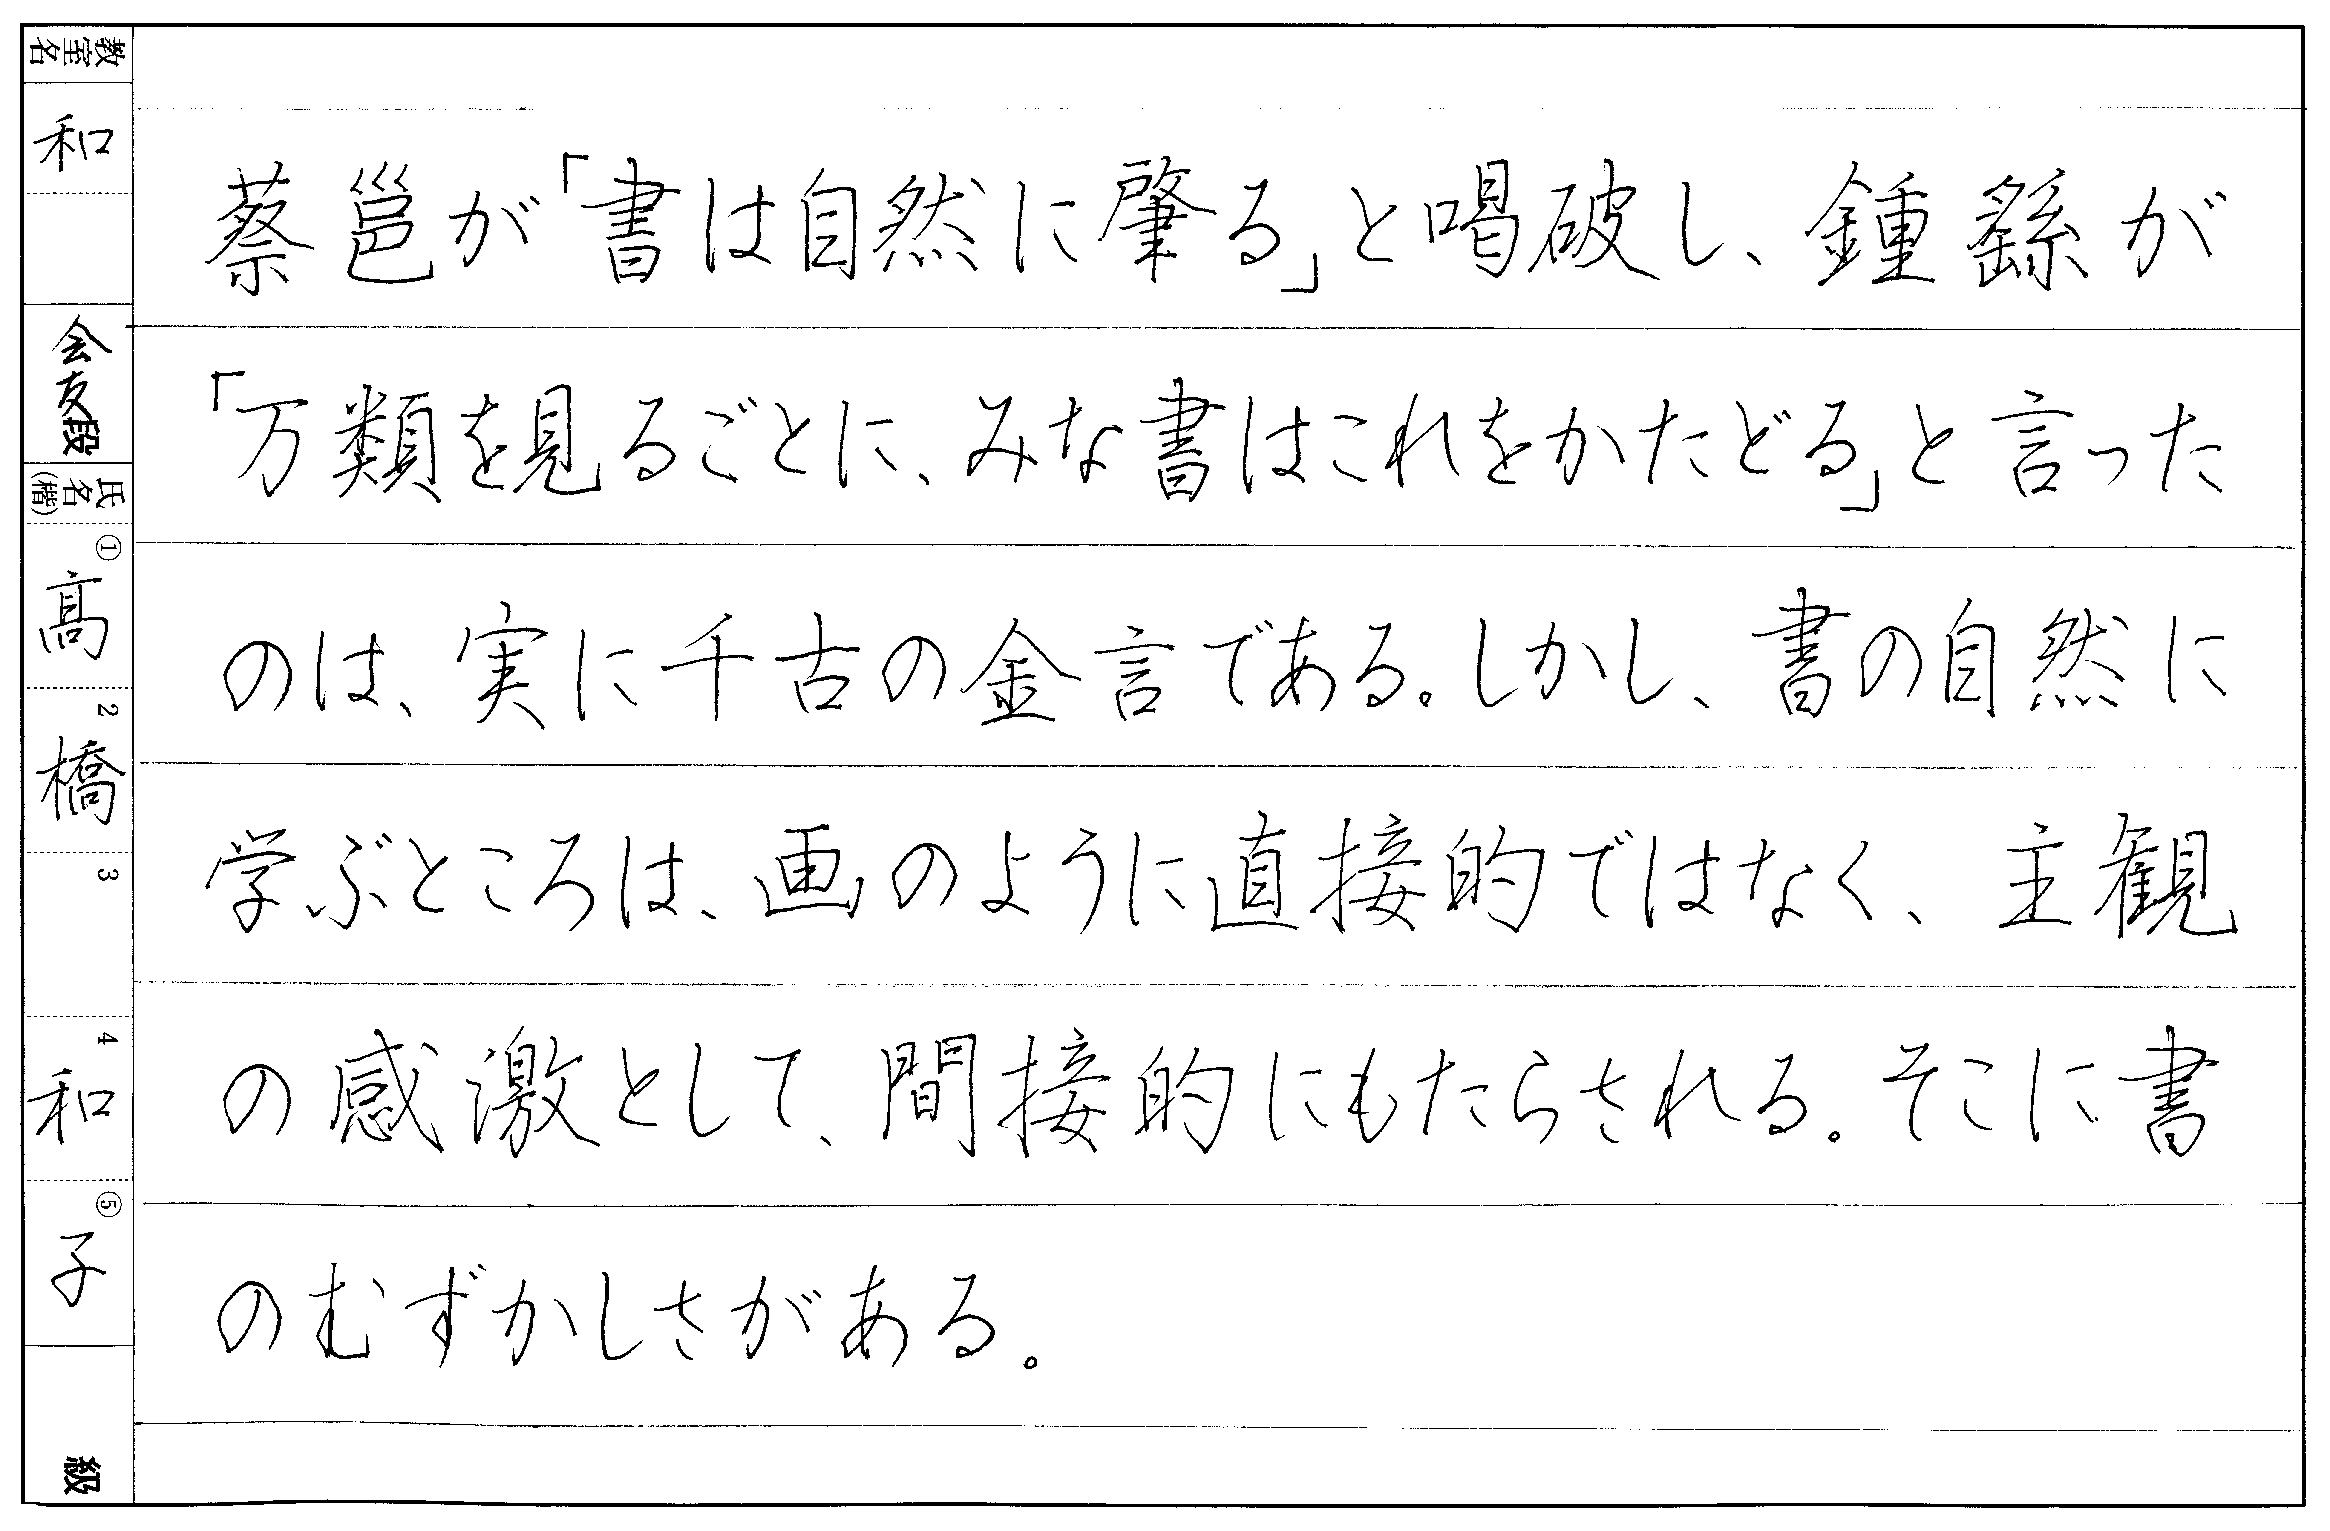 教室名
和
会友段
氏名(楷)
① 高
2 橋
3
4 和
⑤ 子
級
蔡邕が「書は自然に肇る」と喝破し、鍾繇が
「万類を見るごとに、みな書はこれをかたどる」と言った
のは、実に千古の金言である。しかし、書の自然に
学ぶところは、画のように直接的ではなく、主観
の感激として、間接的にもたらされる。そこに書
のむずかしさがある。